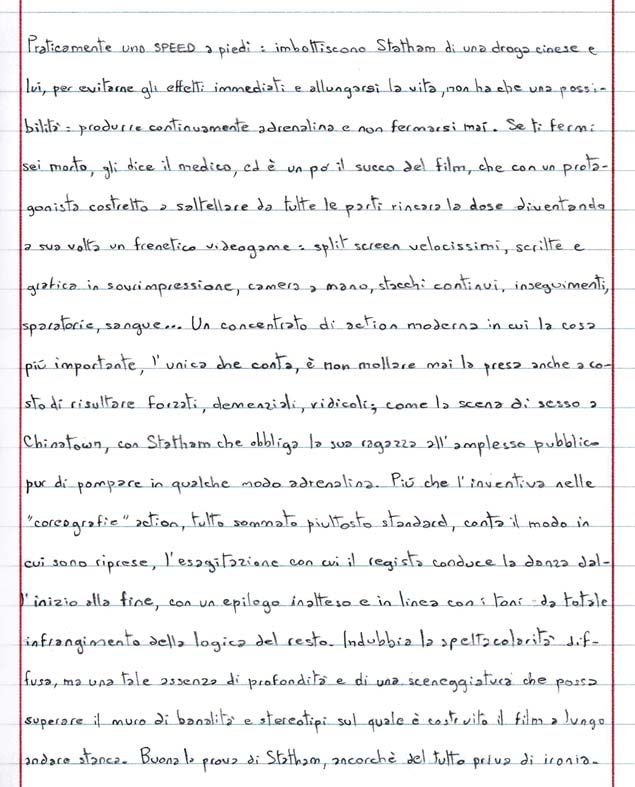 Praticamente uno SPEED a piedi: imbottiscono Statham di una droga cinese e
lui, per evitarne gli effetti immediati e allungarsi la vita, non ha che una possi-
bilità: produrre continuamente adrenalina e non fermarsi mai. Se ti fermi
sei morto, gli dice il medico, ed è un po' il succo del film, che con un prota-
gonista costretto a saltellare da tutte le parti rincara la dose diventando
a sua volta un frenetico videogame: split screen velocissimi, scritte e
grafica in sovrimpressione, camera a mano, stacchi continui, inseguimenti,
sparatorie, sangue... Un concentrato di action moderna in cui la cosa
più importante, l'unica che conta, è non mollare mai la presa anche a co-
sto di risultare forzati, demenziali, ridicoli; come la scena di sesso a
Chinatown, con Statham che obbliga la sua ragazza all'amplesso pubblico
pur di pompare in qualche modo adrenalina. Più che l'inventiva nelle
"coreografie" action, tutto sommato piuttosto standard, conta il modo in
cui sono riprese, l'esagitazione con cui il regista conduce la danza dal-
l'inizio alla fine, con un epilogo inatteso e in linea con i toni - da totale
infrangimento della logica del resto. Indubbia la spettacolarità dif-
fusa, ma una tale assenza di profondità e di una sceneggiatura che possa
superare il muro di banalità e stereotipi sul quale è costruito il film a lungo
andare stanca. Buona la prova di Statham, ancorchè del tutto priva di ironia.